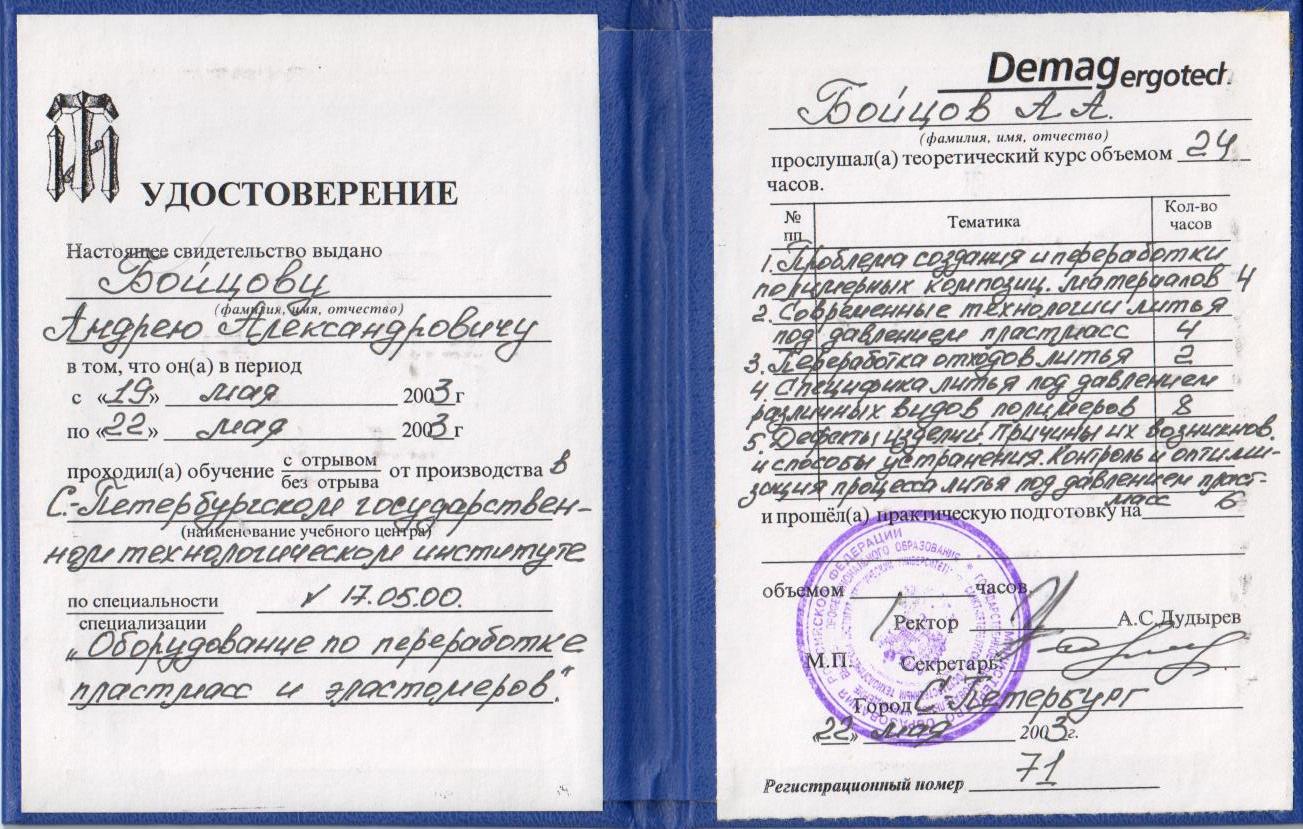 УДОСТОВЕРЕНИЕ
Настоящее свидетельство выдано
Бойцову
(фамилия, имя, отчество)
Андрею Александровичу
в том, что он(а) в период
с «19» мая 2003 г
по «22» мая 2003 г
проходил(а) обучение с отрывом от производства в
без отрыва
С.-Петербургском государствен-
(наименование учебного центра)
ном технологическом институте
по специальности 17.05.00.
специализации
„Оборудование по переработке
пластмасс и эластомеров."
Demag ergotech.
Бойцов А А.
(фамилия, имя, отчество)
прослушал(а) теоретический курс объемом 24
часов.
№ пп Тематика Кол-во часов
1. Проблема создания и переработки
полимерных композиц. материалов 4
2. Современные технологии литья
под давлением пластмасс 4
3. Переработка отходов литья 2
4 Специфика литья под давлением
различных видов полимеров 8
5. Дефекты изделий. Причины их возникнов.
и способы устранения. Контроль и оптими-
зация процесса литья под давлением пласт-
масс 6
и прошёл(а) практическую подготовку на
объемом часов
Ректор А.С.Дудырев
М.П. Секретарь
Город С. Петербург
«22» мая 2003г.
Регистрационный номер 71